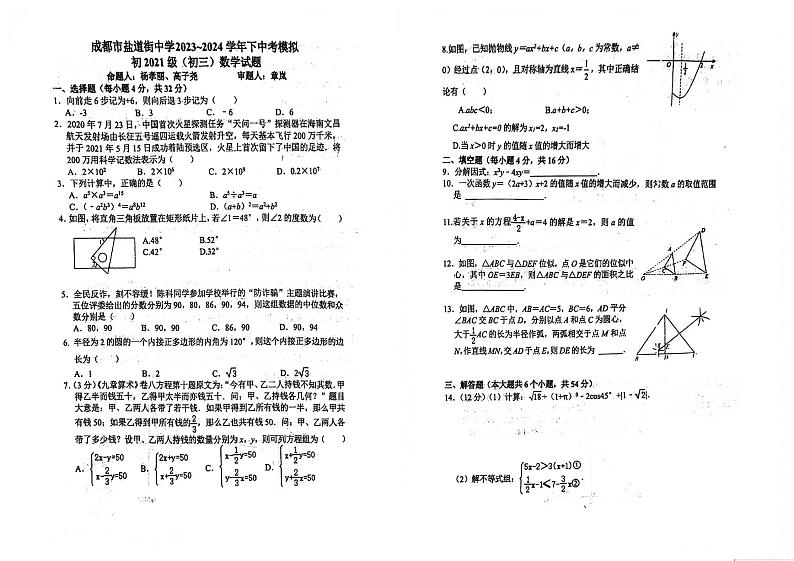 成都市盐道街中学2023~2024学年下中考模拟
初2021级（初三）数学试题
命题人：杨孝丽、高子尧 审题人：章岚
一、选择题（每小题4分，共32分）
1．向前走6步记为+6，则向后退3步记为（ ）
A．-3 B．3 C．-6 D．6
2．2020年7月23日，中国首次火星探测任务“天问一号”探测器在海南文昌
航天发射场由长征五号遥四运载火箭发射升空，每天基本飞行200万千米，
并于2021年5月15日成功着陆预选区，火星上首次留下了中国的足迹．将
200万用科学记数法表示为（ ）
A．2×10² B．2×10⁶ C．2×10⁹ D．0.2×10⁷
3．下列计算中，正确的是（ ）
A．a⁵×a³=a¹⁵ B．a⁵÷a³=a
C．(﹣a²b³)⁴=a⁸b¹² D．(a+b)²=a²+b²
4．如图，将直角三角板放置在矩形纸片上，若∠1=48°，则∠2的度数为（ ）
A.48° B.52°
C.42° D.32°
5．全民反诈，刻不容缓！陈科同学参加学校举行的“防诈骗”主题演讲比赛，
五位评委给出的分数分别为90，80，86，90，94，则这组数据的中位数和众
数分别是（ ）
A．80，90 B．90，90 C．86，90 D．90，94
6．半径为2的圆的一个内接正多边形的内角为120°，则这个内接正多边形的边
长为（ ）
A．1 B．2 C．√3 D．2√3
7．（3分）《九章算术》卷八方程第十题原文为：“今有甲、乙二人持钱不知其数．甲
得乙半而钱五十，乙得甲太半而亦钱五十．问：甲、乙持钱各几何？”题目
大意是：甲、乙两人各带了若干钱．如果甲得到乙所有钱的一半，那么甲共
有钱50；如果乙得到甲所有钱的2/3，那么乙也共有钱50．问：甲、乙两人各
带了多少钱？设甲、乙两人持钱的数量分别为x，y，则可列方程组为（ ）
A．{2x-y=50 x-2/3y=50 B．{2x+y=50 x+2/3y=50 C．{x-1/2y=50 y-2/3x=50 D．{x+1/2y=50 y+2/3x=50
8.如图，已知抛物线y=ax²+bx+c（a，b，c为常数，a≠
0）经过点（2，0），且对称轴为直线x=1/2，其中正确结
论有（ ）
A.abc<0； B.a+b+c>0；
C.ax²+bx+c=0的解为x₁=2，x₂=-1
D.当x>0时y的值随x值的增大而增大
二、填空题（每小题4分，共16分）
9．分解因式：x³y﹣4xy=
10．一次函数y=（2a+3）x+2的值随x值的增大而减少，则常数a的取值范围
是
11.若关于x的方程(4-x)/2+a=4的解是x=2，则a的值
为
12．如图，△ABC与△DEF位似，点O是它们的位似中
心，其中OE=3EB，则△ABC与△DEF的面积之比
是
13．如图，△ABC中，AB=AC=5，BC=6，AD平分
∠BAC交BC于点D，分别以点A和点C为圆心，
大于1/2AC的长为半径作弧，两弧相交于点M和点
N，作直线MN，交AD于点E，则DE的长为 ．
三、解答题（本大题共6个小题，共54分）
14．（12分）（1）计算：√18+（1+π）⁰﹣2cos45°+|1﹣√2|．
（2）解不等式组：{5x-2>3(x+1)① 1/2x-1≤7-3/2x②